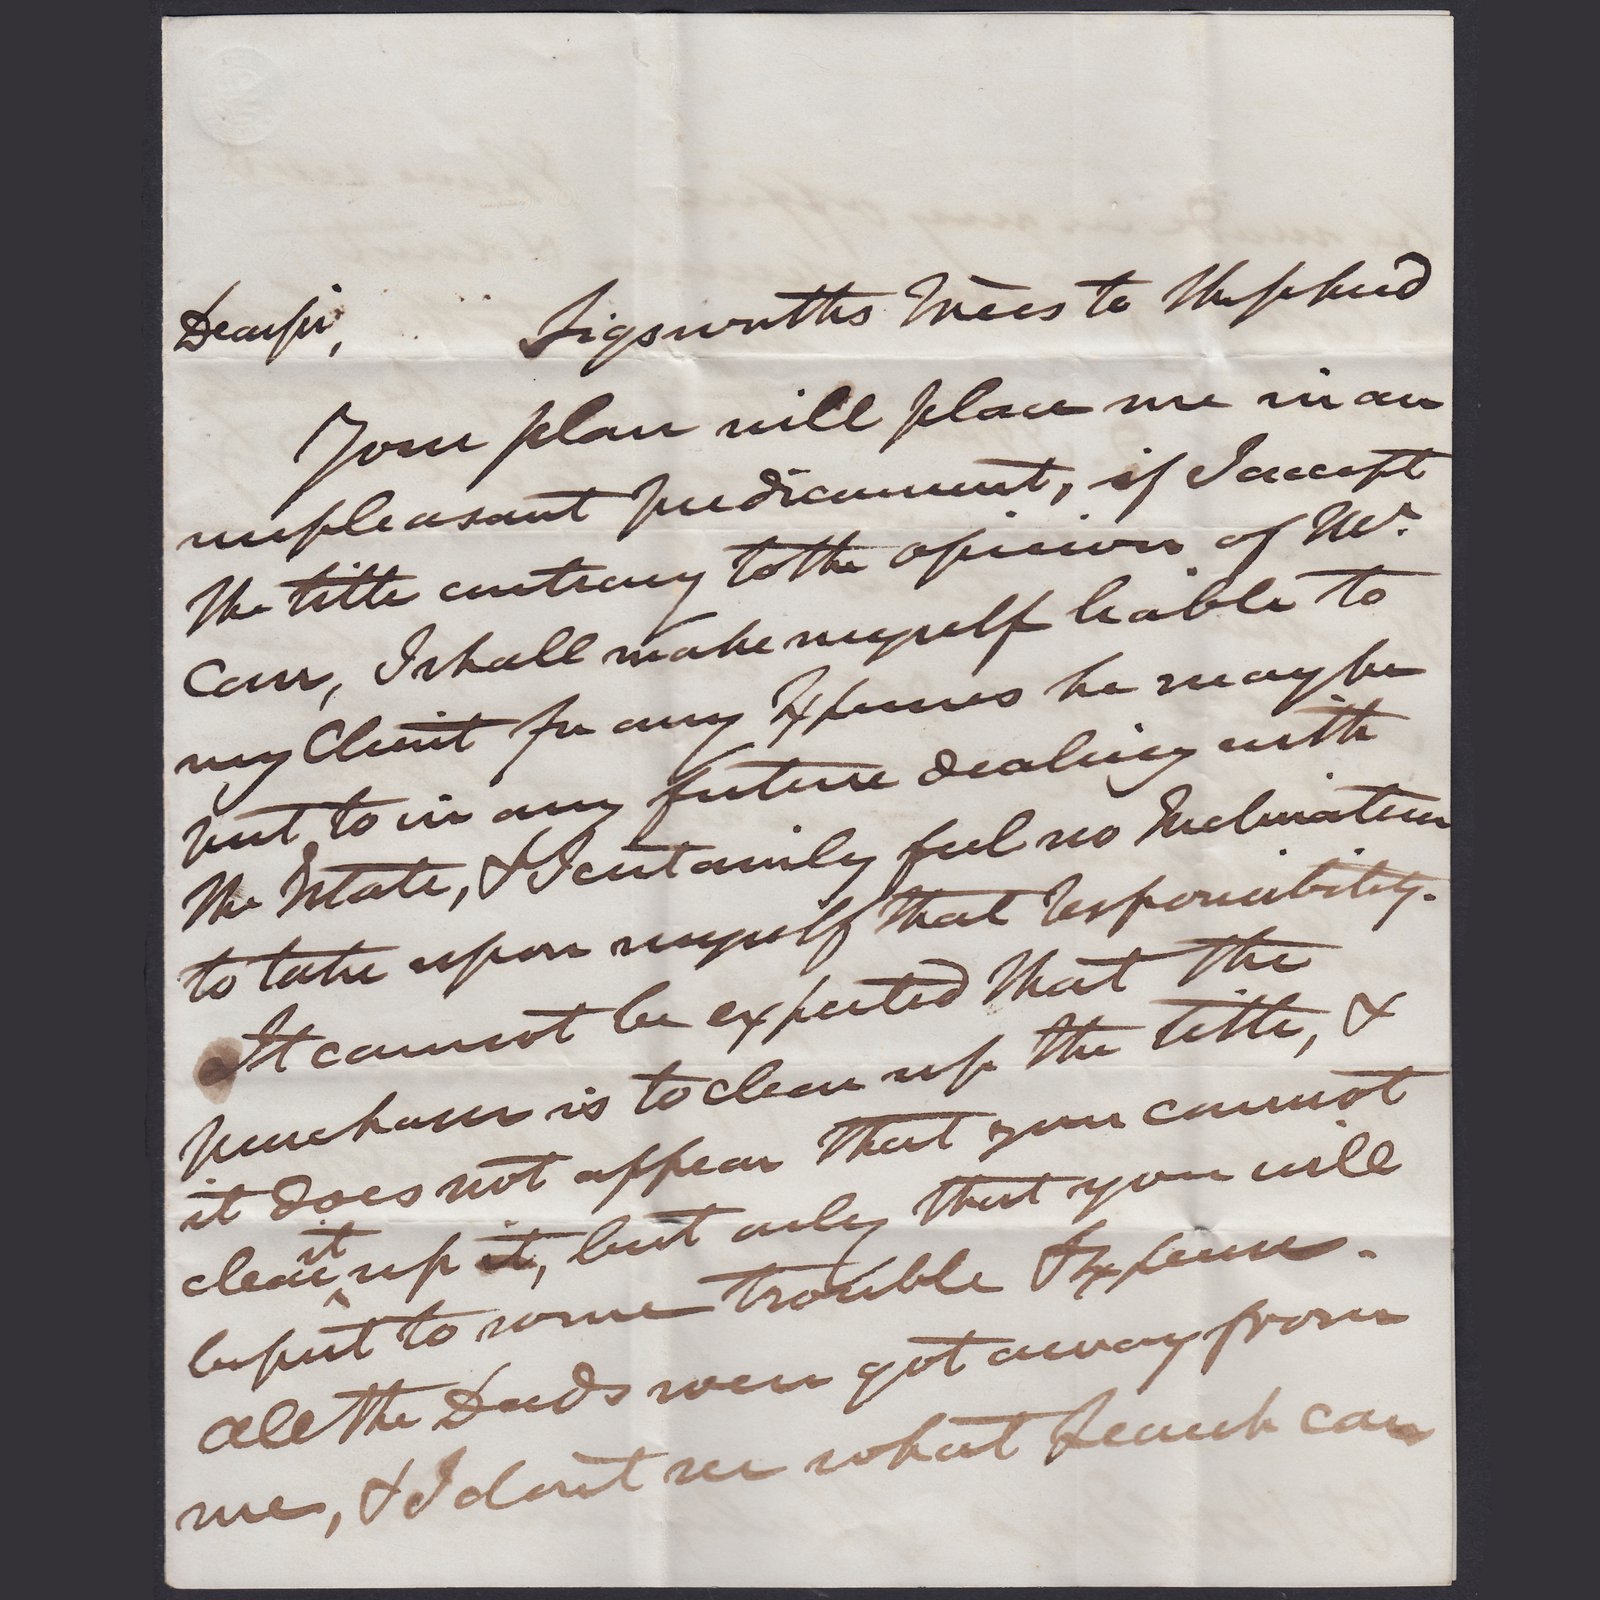 Dear Sir, Sigsworths Trees to Shepherd
Your plan will place me in an
unpleasant predicament, if I accept
the title contrary to the opinion of Mr.
Carr, I shall make myself liable to
my Client for any Expenses he may be
put to in any future dealing with
the Estate, & I certainly feel no Inclination
to take upon myself that responsibility.
It cannot be expected that the
purchaser is to clear up the title, &
it does not appear that you cannot
clear it up it, but only that you will
be put to some trouble & Expense.
All the Deeds were got away from
me, & I don't see what Search can